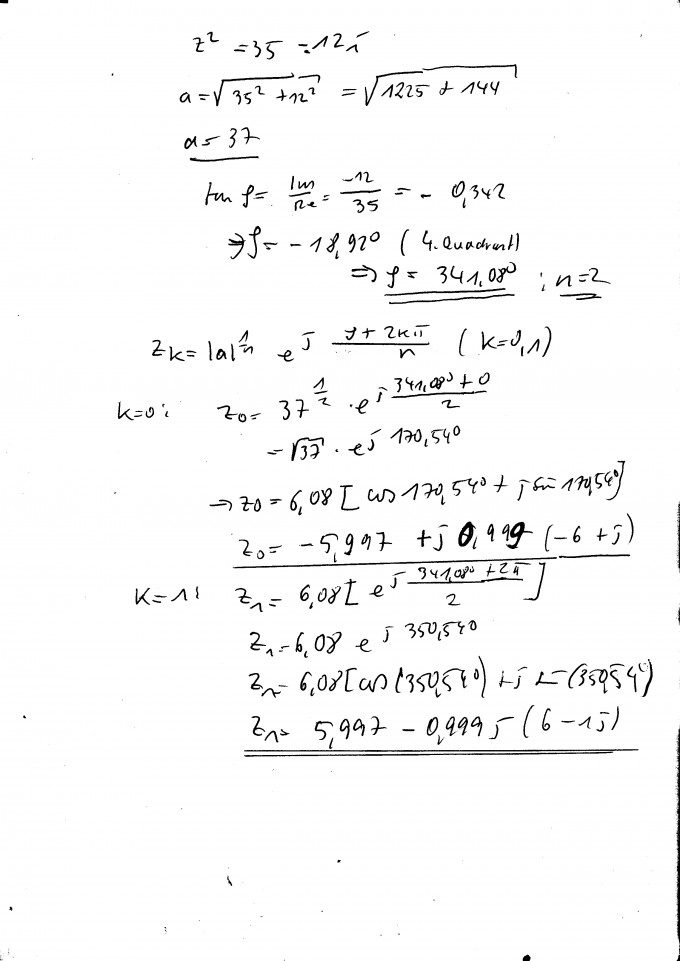 z² = 35 - 12j
a = √(35² + 12²) = √(1225 + 144)
a = 37
tan φ = Im/Re = -12/35 = - 0,342
⇒ φ = - 18,92° ( 4. Quadrant)
⇒ φ = 341,08° ; n=2
z_k = |a|^(1/n) e^(j (φ + 2kπ)/n) ( k=0,1)
k=0: z_0 = 37^(1/2) · e^(j (341,08° + 0)/2)
= √37 · e^(j 170,54°)
→ z_0 = 6,08 [ cos 170,54° + j sin 170,54°]
z_0 = - 5,997 + j 0,999 (-6 + j)
K=1: z_1 = 6,08 [ e^(j (341,08° + 2π)/2) ]
z_1 = 6,08 e^(j 350,54°)
z_1 = 6,08 [cos (350,54°) + j (350,54°)
z_1 = 5,997 - 0,999 j (6 - 1j)